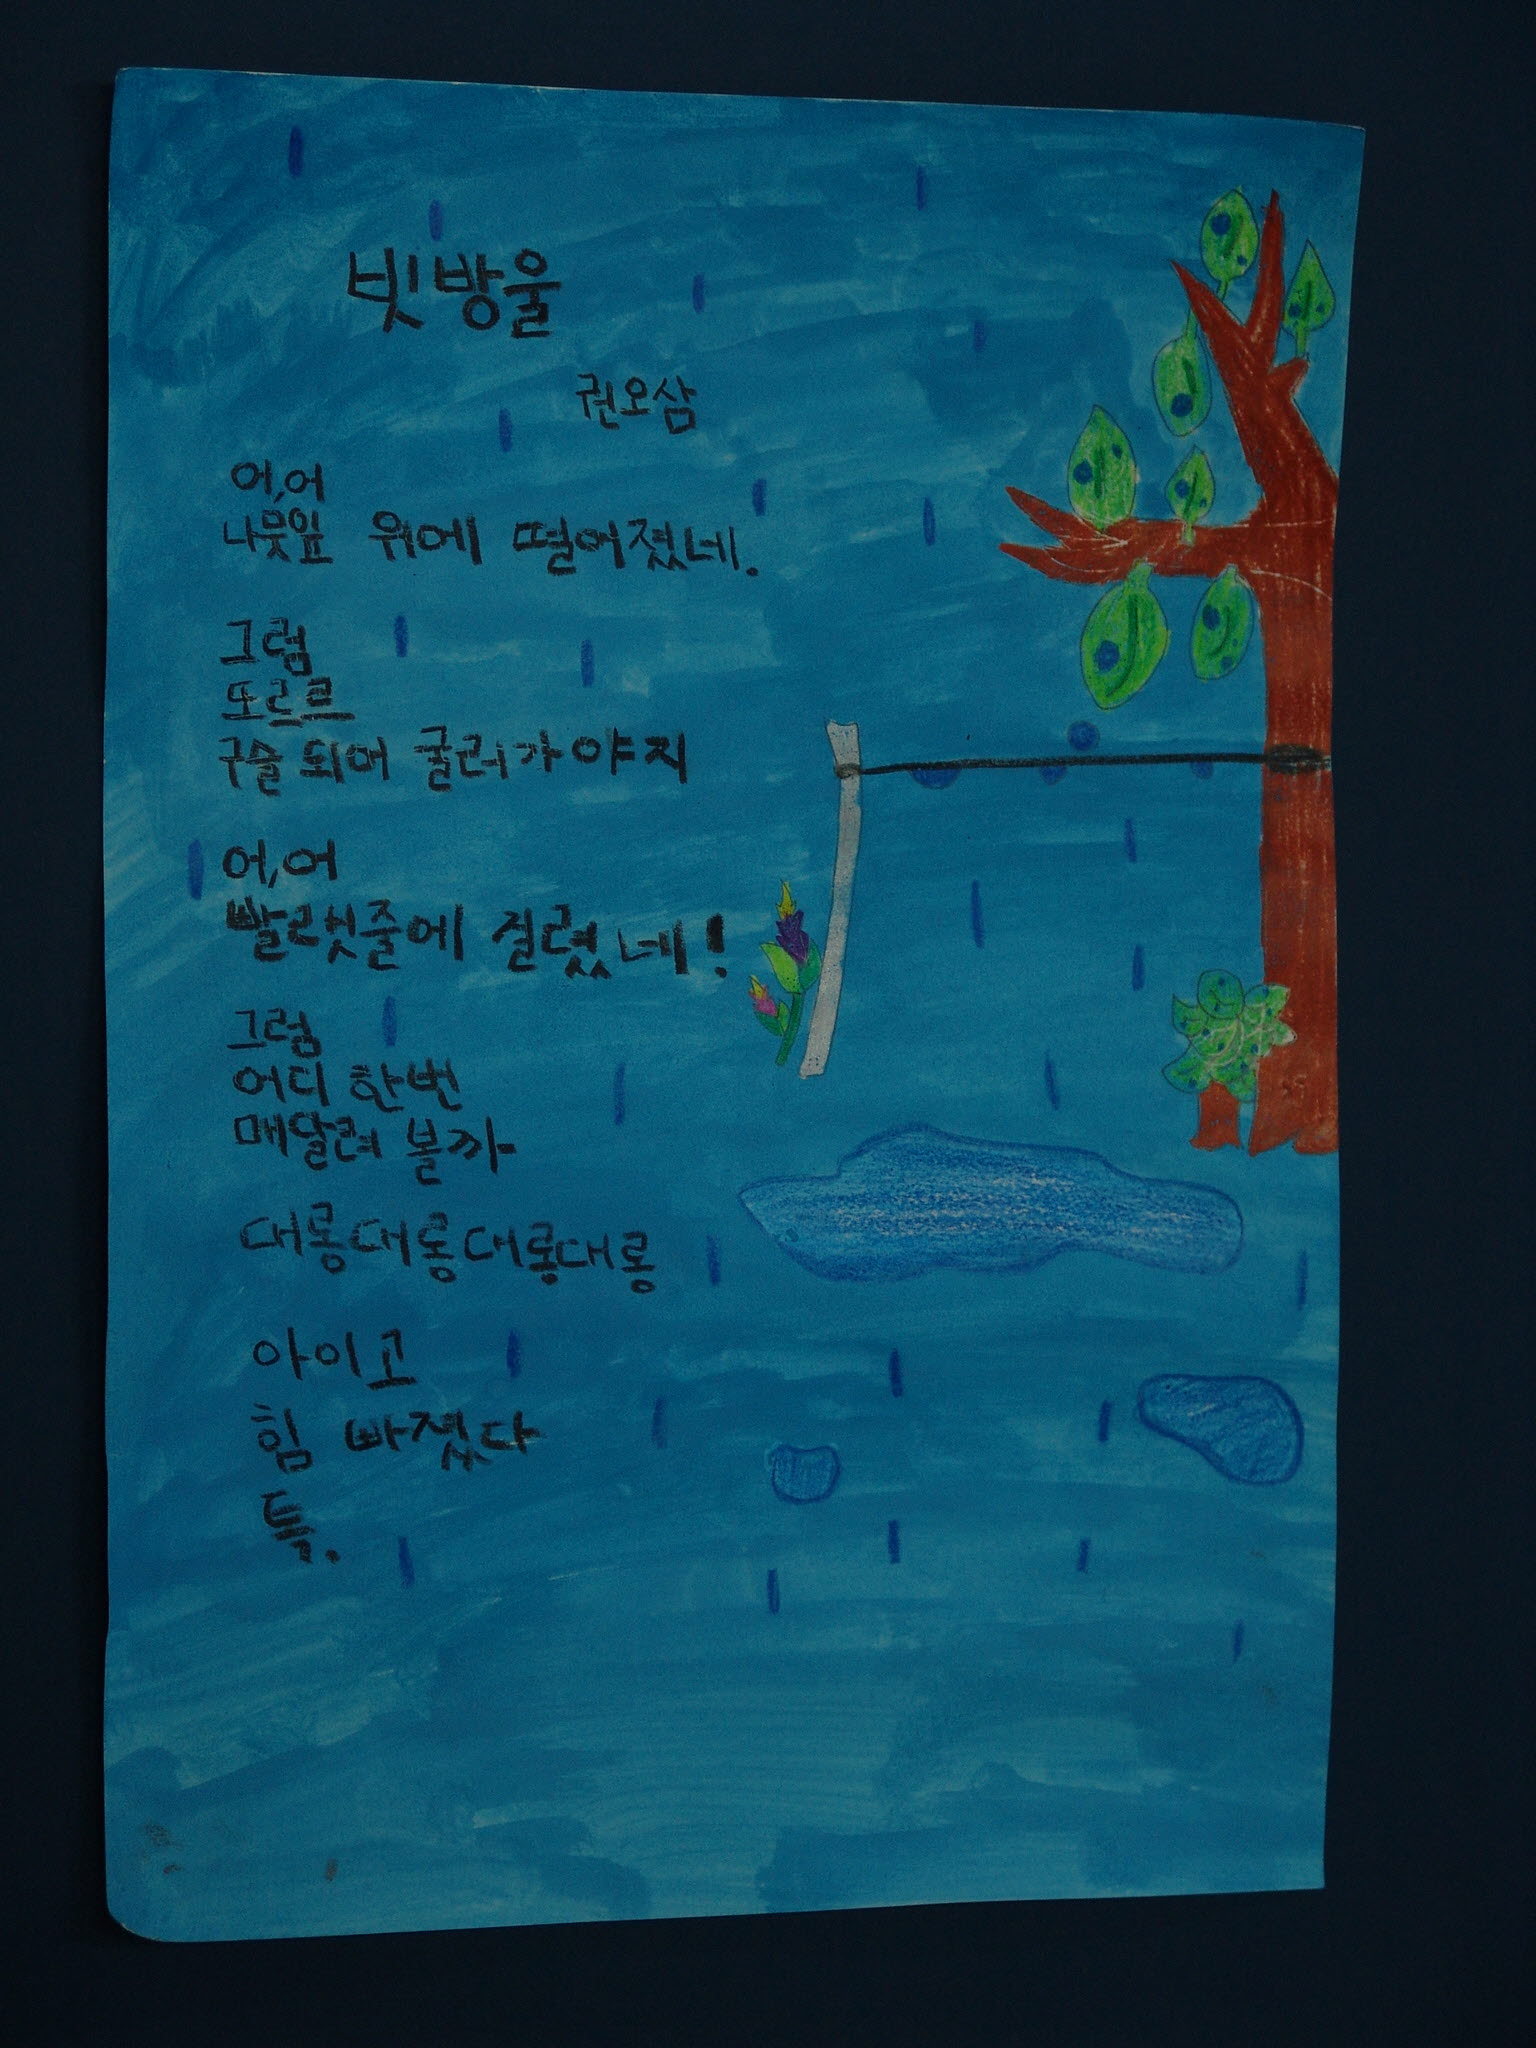 빗방울
권오삼
어,어
나뭇잎 위에 떨어졌네.
그럼
또르르
구슬 되어 굴러가야지
어,어
빨랫줄에 걸렸네!
그럼
어디 한번
매달려 볼까
대롱대롱대롱대롱
아이고
힘 빠졌다
툭.